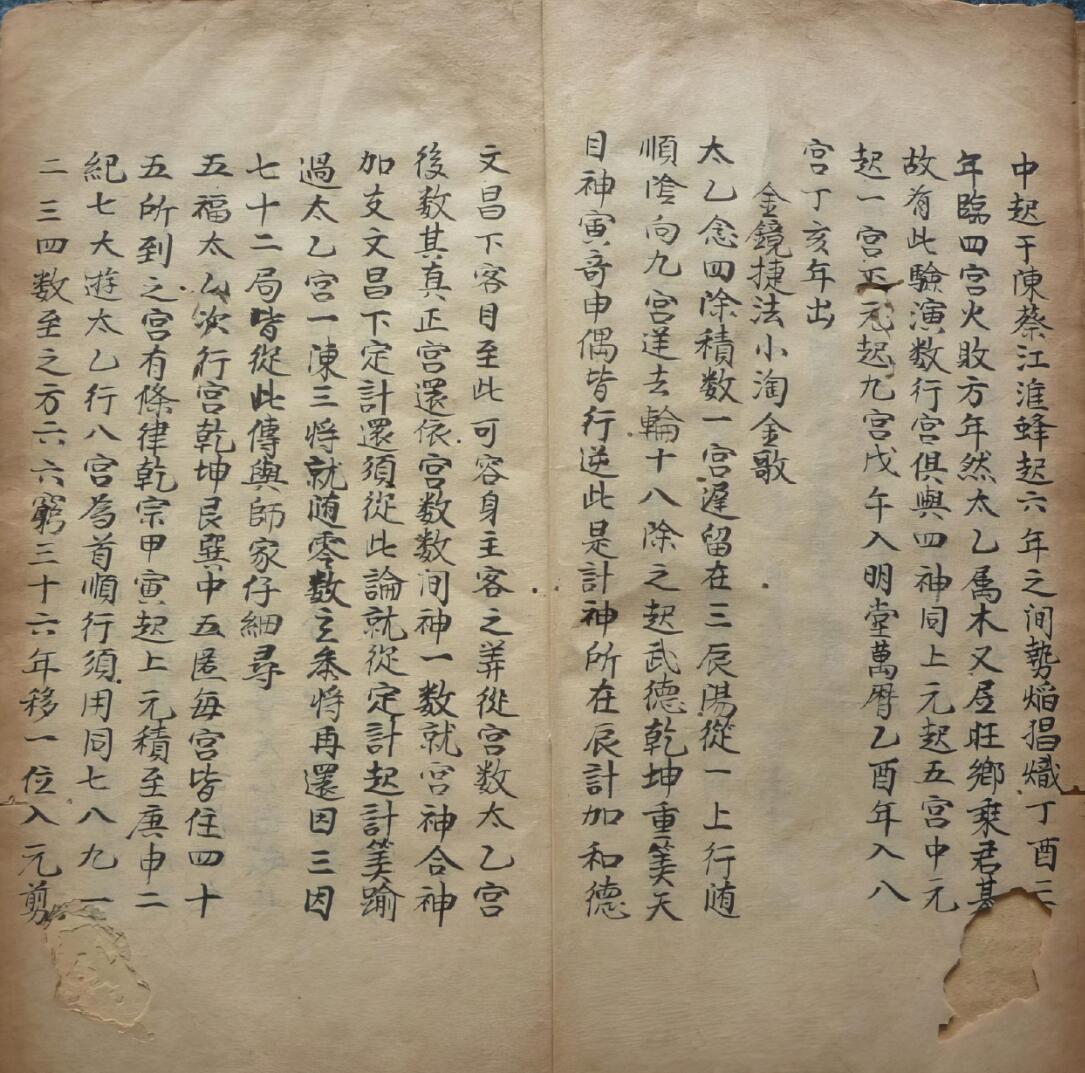 中起于陳蔡江淮蜂起六年之间勢焰猖熾丁酉二
年臨四宫火敗方年然太乙属木又居旺鄉乘君基
故有此驗演数行宫俱與四神同上元起五宫中元
起一宫下元起九宫戊午入明堂萬曆乙酉年入八
宫丁亥年出
金鏡捷法小淘金歌
太乙念四除積数一宫遲留在三辰陽從一上行随
順陰向九宫逆去輪十八除之起武德乾坤重筭天
目神寅竒申偶皆行逆此是計神所在辰計加和德
文昌下客目至此可容身主客之筭從宫数太乙宫
後数其真正宫還依宫数数间神一数就宫神合神
加支文昌下定計還須從此論就從定計起計筭踰
過太乙宫一陳三将就随零数立叅将再還因三因
七十二局皆從此傳與師家仔細尋
五福太乙次行宫乾坤艮巽中五匿每宫皆住四十
五所到之宫有條律乾宗甲寅起上元積至庚申二
紀七大遊太乙行八宫為首順行須用同七八九一
二三四数至之方六六窮三十六年移一位入元剪